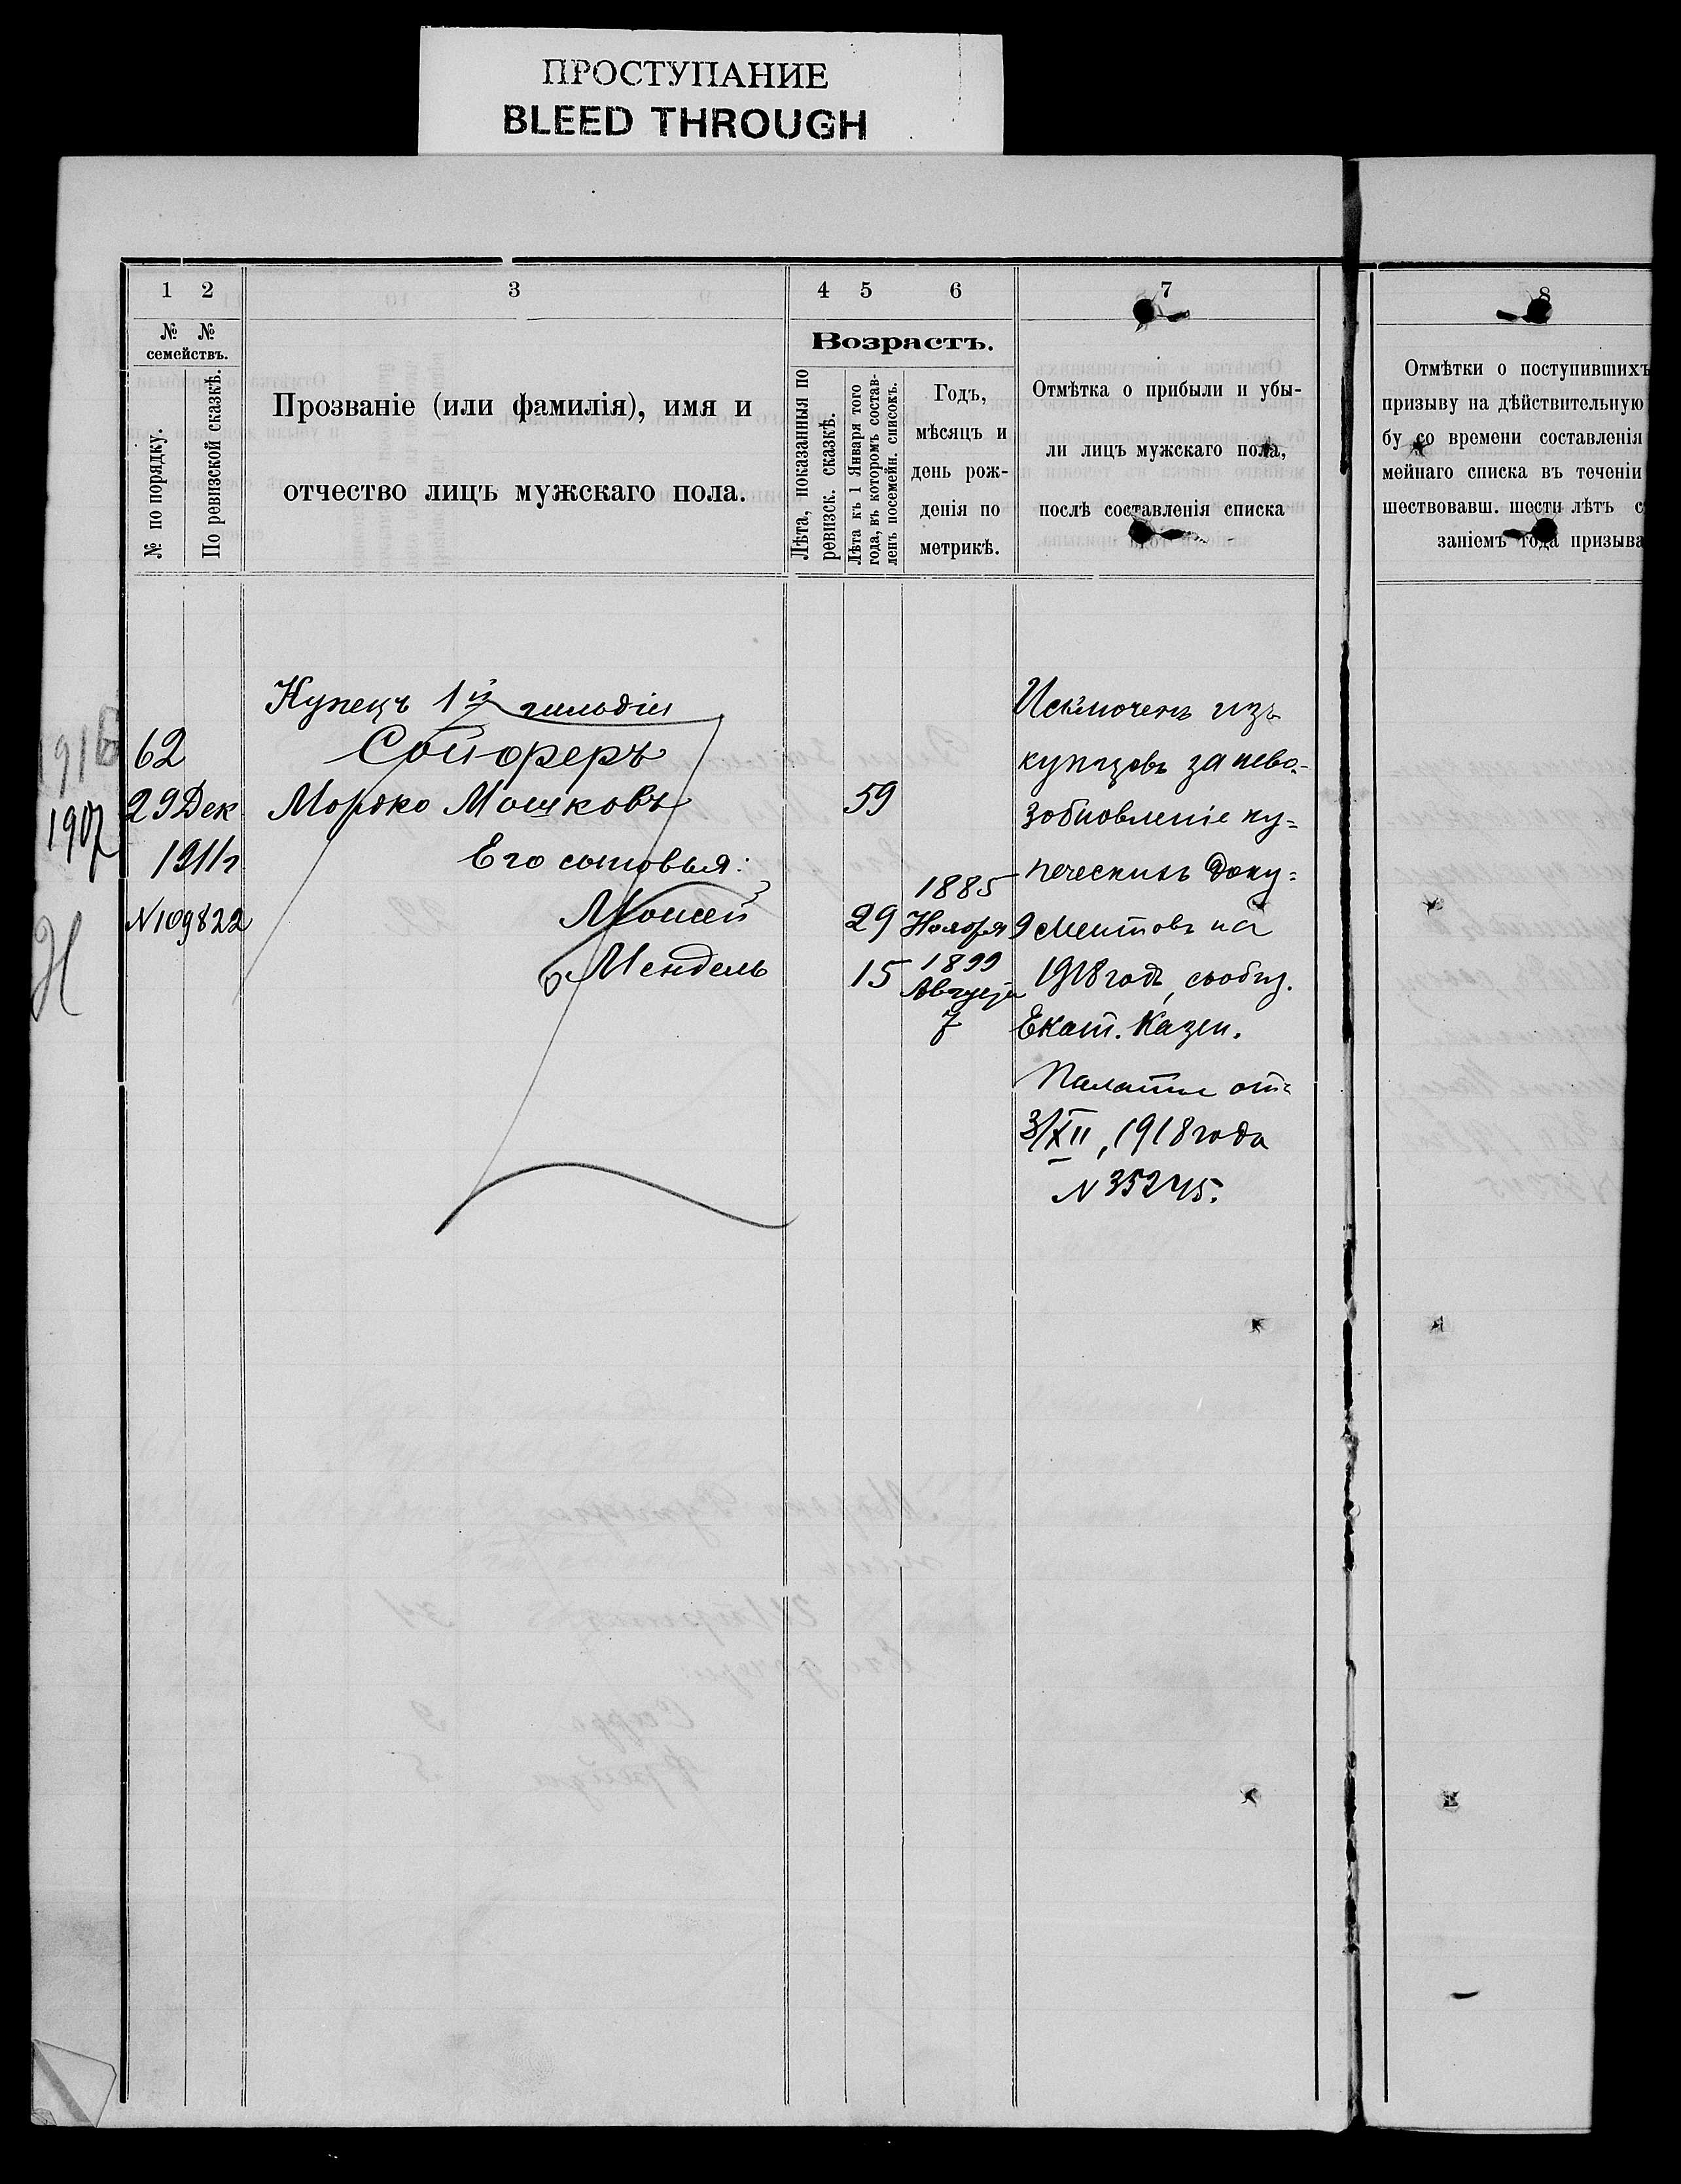 ПРОСТУПАНИЕ
BLEED THROUGH
1 2 3 4 5 6 7 8
№ № семействъ.
№ по порядку.
По ревизской сказкѣ.
Прозваніе (или фамилія), имя и
отчество лицъ мужскаго пола.
Возрастъ.
Лѣта, показанныя по
ревизск. сказкѣ.
Лѣта къ 1 Января того
года, въ которомъ состав-
ленъ посемейн. списокъ.
Годъ,
мѣсяцъ и
день рож-
денія по
метрикѣ.
Отмѣтка о прибыли и убы-
ли лицъ мужскаго пола,
послѣ составленія списка
Отмѣтки о поступившихъ
призыву на дѣйствительную
бу со времени составленія
мейнаго списка въ теченіи
шествовавш. шести лѣтъ с
заніемъ года призыва
1916
1907
62
29 Дек
1911 г
N 109822
Купецъ 1й гильдіи
Сойферъ
Мордко Мошковъ 59
Его сыновья:
Мошей 29 1885 Ноября 9
Мендель 15 1899 Августа 7
Исключенъ изъ
купцовъ за нево-
зобновленіе ку-
печескихъ доку-
ментовъ на
1918 годъ, сообщ.
Екат. Казен.
Палаты отъ
3/XII, 1918 года
N 35245.